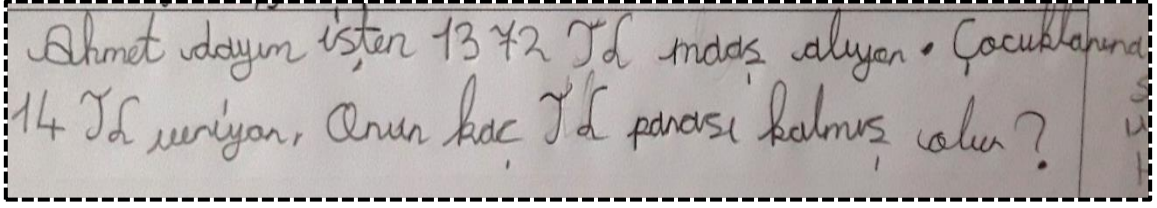 Ahmet dayım işten 1372 TL maaş alıyor. Çocuklarına
14 TL veriyor, Onun kaç TL parası kalmış olur?